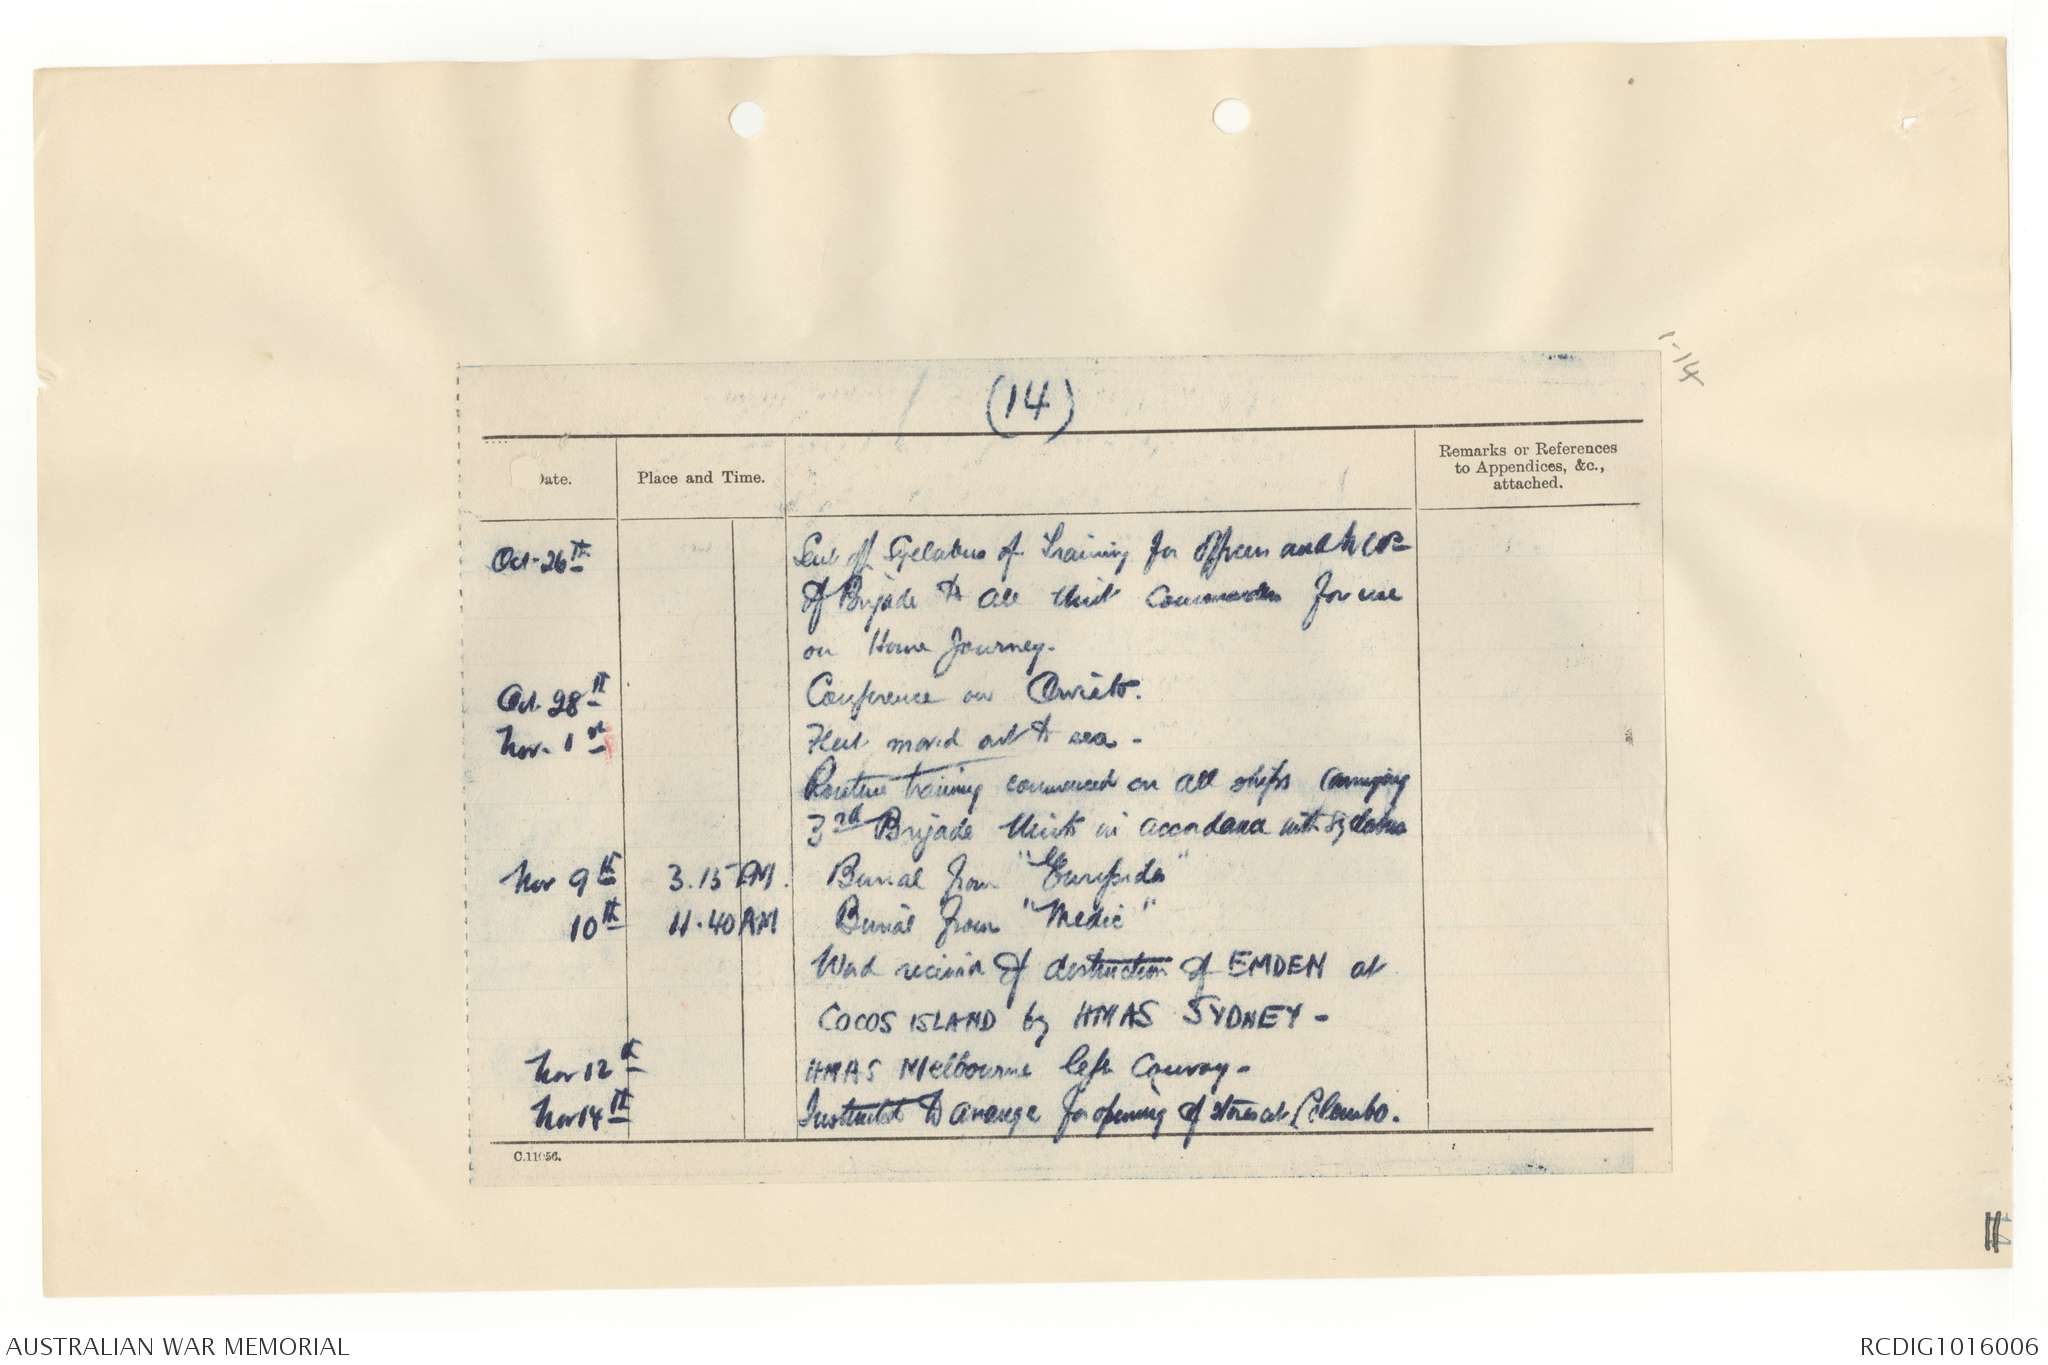 1-14
(14)
Date.
Place and Time.
Remarks or References
to Appendices, &c.,
attached.
Oct. 26th Sent off Syllabus of Training for Officers and NCOs
of Brigade to all Unit Commanders for use
on Home Journey.
Oct. 28th Conference on Orvieto.
Nov. 1st Fleet moved out to sea -
Routine training commenced on all ships carrying
3rd Brigade Units in accordance with Syllabus
Nov 9th 3.15 PM. Burial from "Euripides"
10th 11.40 AM Burial from "Medic"
Word received of destruction of EMDEN at
COCOS ISLAND by HMAS SYDNEY -
Nov 12th HMAS Melbourne left Convoy -
Nov 14th Instructed to arrange for opening of stores at Colombo.
C.11056.
AUSTRALIAN WAR MEMORIAL
RCDIG1016006